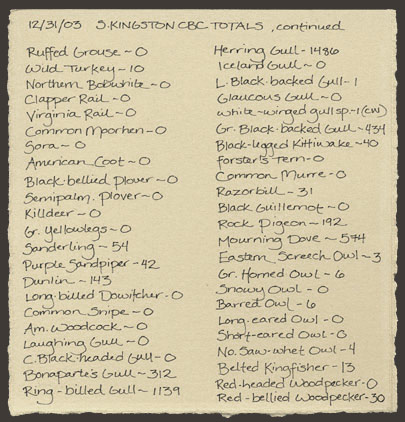 12/31/03 S. KINGSTON CBC TOTALS, continued
Ruffed Grouse - 0
Wild Turkey - 10
Northern Bobwhite - 0
Clapper Rail - 0
Virginia Rail - 0
Common Moorhen - 0
Sora - 0
American Coot - 0
Black-bellied Plover - 0
Semipalm. Plover - 0
Killdeer - 0
Gr. Yellowlegs - 0
Sanderling - 54
Purple Sandpiper - 42
Dunlin - 143
Long-billed Dowitcher - 0
Common Snipe - 0
Am. Woodcock - 0
Laughing Gull - 0
C. Black-headed Gull - 0
Bonaparte's Gull - 312
Ring-billed Gull - 1139
Herring Gull - 1486
Iceland Gull - 0
L. Black-backed Gull - 1
Glaucous Gull - 0
white-winged gull sp - 1 (cw)
Gr. Black-backed Gull - 434
Black-legged Kittiwake - 40
Forster's Tern - 0
Common Murre - 0
Razorbill - 31
Black Guillemot - 0
Rock Pigeon - 192
Mourning Dove - 574
Eastern Screech Owl - 3
Gr. Horned Owl - 6
Snowy Owl - 0
Barred Owl - 6
Long-eared Owl - 0
Short-eared Owl - 0
No. Saw-whet Owl - 4
Belted Kingfisher - 13
Red-headed Woodpecker - 0
Red-bellied Woodpecker - 30